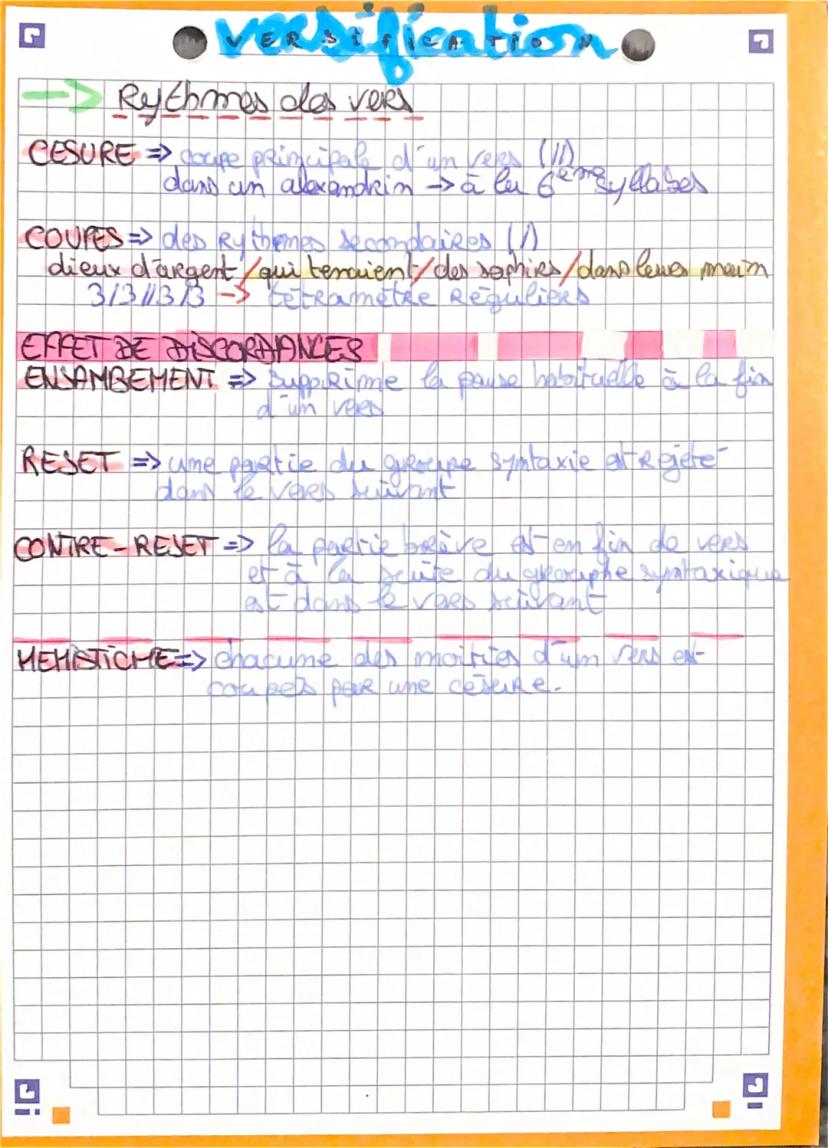 versification
VERSIFICATION
Rythmes des vers
CESURE => coupe principale d'un vers (//)
dans un alexandrin -> à la 6ème syllabes
COUPES => des Rythmes secondaires (/)
dieux d'argent / qui tenaient / des saphirs / dans leurs main
3/3//3/3 -> tétramètre Réguliers
EFFET DE DISCORDANCES
ENJAMBEMENT => supprime la pause habituelle à la fin
d'un vers
REJET => une partie du groupe syntaxie et rejeté
dans le vers suivant
CONTRE-REJET => la partie brève est en fin de vers
et à la suite du grouphe syntaxique
est dans le vers suivant
HEMISTICHE => chacune des moitiés d'un vers est
coupés par une césure.